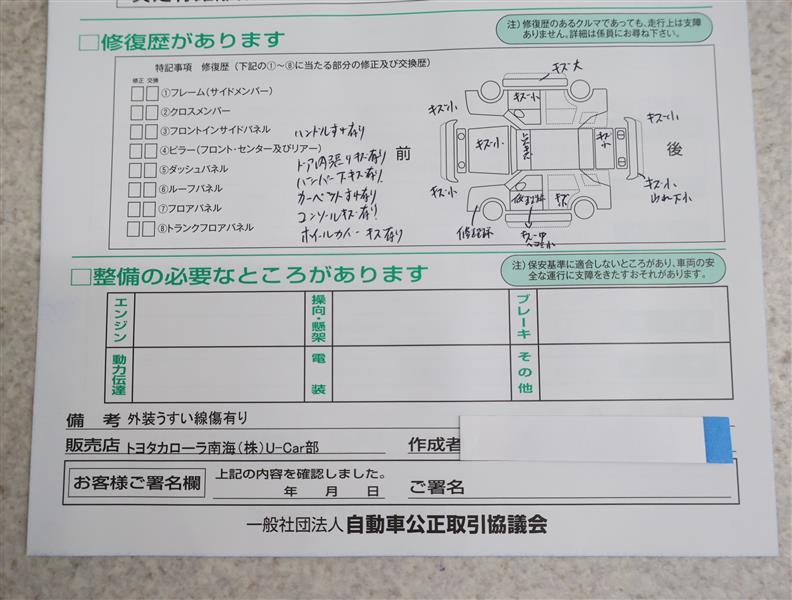 □修復歴があります
注）修復歴のあるクルマであっても、走行上は支障
ありません。詳細は係員にお尋ね下さい。
特記事項 修復歴（下記の①〜⑧に当たる部分の修正及び交換歴）
修正 交換
①フレーム（サイドメンバー）
②クロスメンバー
③フロントインサイドパネル
④ピラー（フロント・センター及びリアー）
⑤ダッシュパネル
⑥ルーフパネル
⑦フロアパネル
⑧トランクフロアパネル
ハンドルすれ有り
ドア内張りキズ有り
バンパー下キズ有り
カーペットすれ有り
コンソールキズ有り
ホイールカバーキズ有り
前
後
キズ大
キズ小
キズ小
キズ小
キズ小
キズ小
キズ小
キズ小
キズ
修理跡
修理跡
キズ中
ヘコミ小
□整備の必要なところがあります
注）保安基準に適合しないところがあり、車両の安
全な運行に支障をきたすおそれがあります。
エンジン
操向・懸架
ブレーキ
動力伝達
電装
その他
備考 外装うすい線傷有り
販売店 トヨタカローラ南海（株）U-Car部
作成者
お客様ご署名欄
上記の内容を確認しました。
年 月 日
ご署名
一般社団法人 自動車公正取引協議会